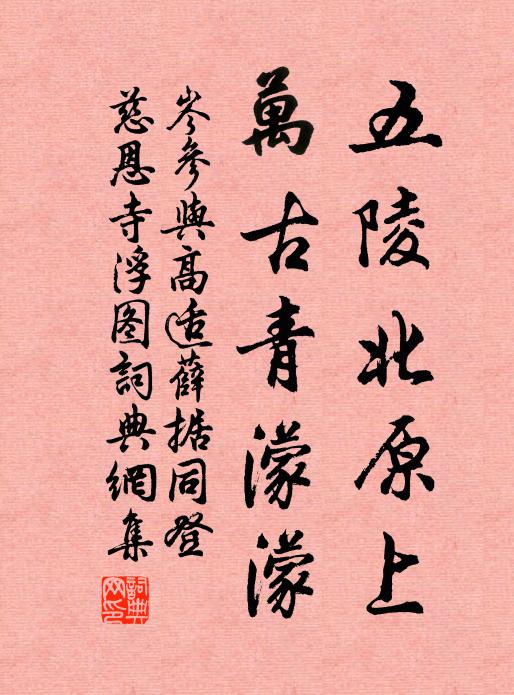 五陵北原上
萬古青濛濛
岑參與高適薛據同登
慈恩寺浮图詞典網集
詞典
网印